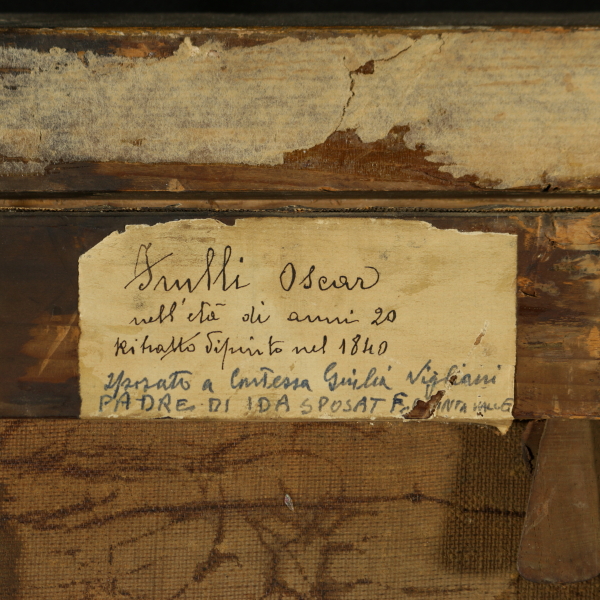 Frulli Oscar
nell'età di anni 20
Ritratto dipinto nel 1840
sposato a Contessa Giulia Vigliani
PADRE DI IDA SPOSATE VALLE